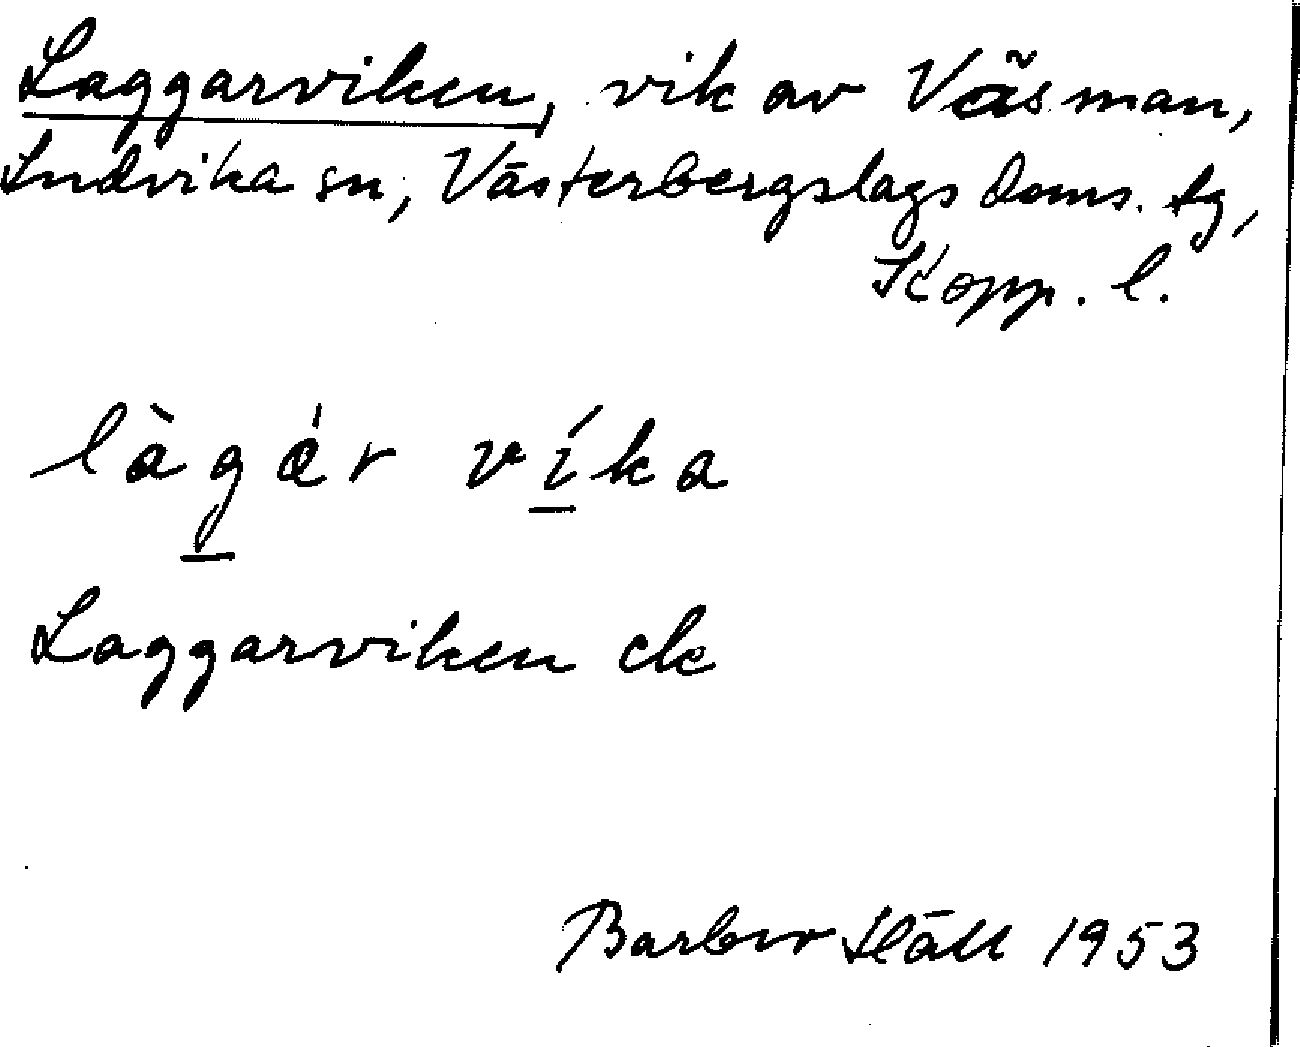 Laggarviken, vik av Väsman,
Ludvika sn, Västerbergslags doms. tg,
Kopp. l.
làgár víka
Laggarviken ek
Barbro Häll 1953